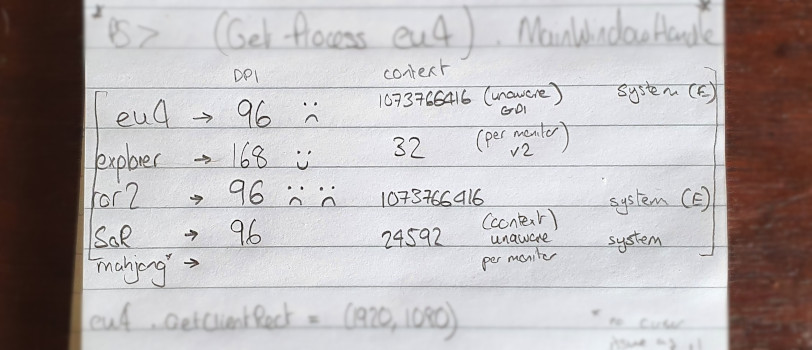 * PS > (Get Process eu4).MainWindowHandle *
DPI context
eu4 → 96 :( 1073766416 (unaware) GDI system (E)
explorer → 168 :) 32 (per moniter) v2
ror2 → 96 :( :( 1073766416 system (E)
SoR → 96 24592 (context) unaware system
mahjong* → per moniter
eu4.GetClientRect = (1920, 1080)
* no